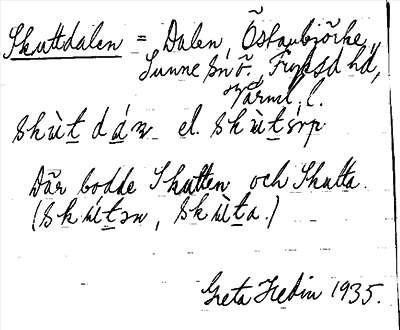 Skuttdalen = Dalen, Östanbjörke,
Sunne sn ö., Fryksd hd,
Värml. l.
skùt dáɴ el. skùtsrp
Där bodde Skutten och Skutta.
(skùtəɴ, skùta.)
Greta Hedin 1935.